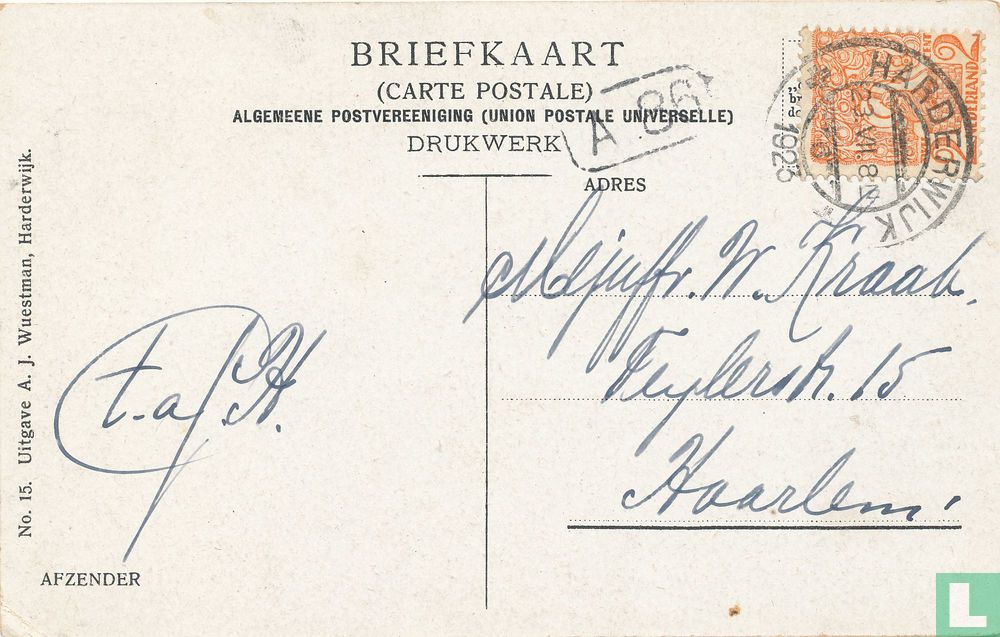 BRIEFKAART
(CARTE POSTALE)
ALGEMEENE POSTVEREENIGING (UNION POSTALE UNIVERSELLE)
DRUKWERK
A 86
HARDERWIJK
1923
2
ADRES
Mejuffr. W. Kraak.
Teylerstr. 15
Haarlem.
AFZENDER
No. 15. Uitgave A. J. Wuestman, Harderwijk.
L